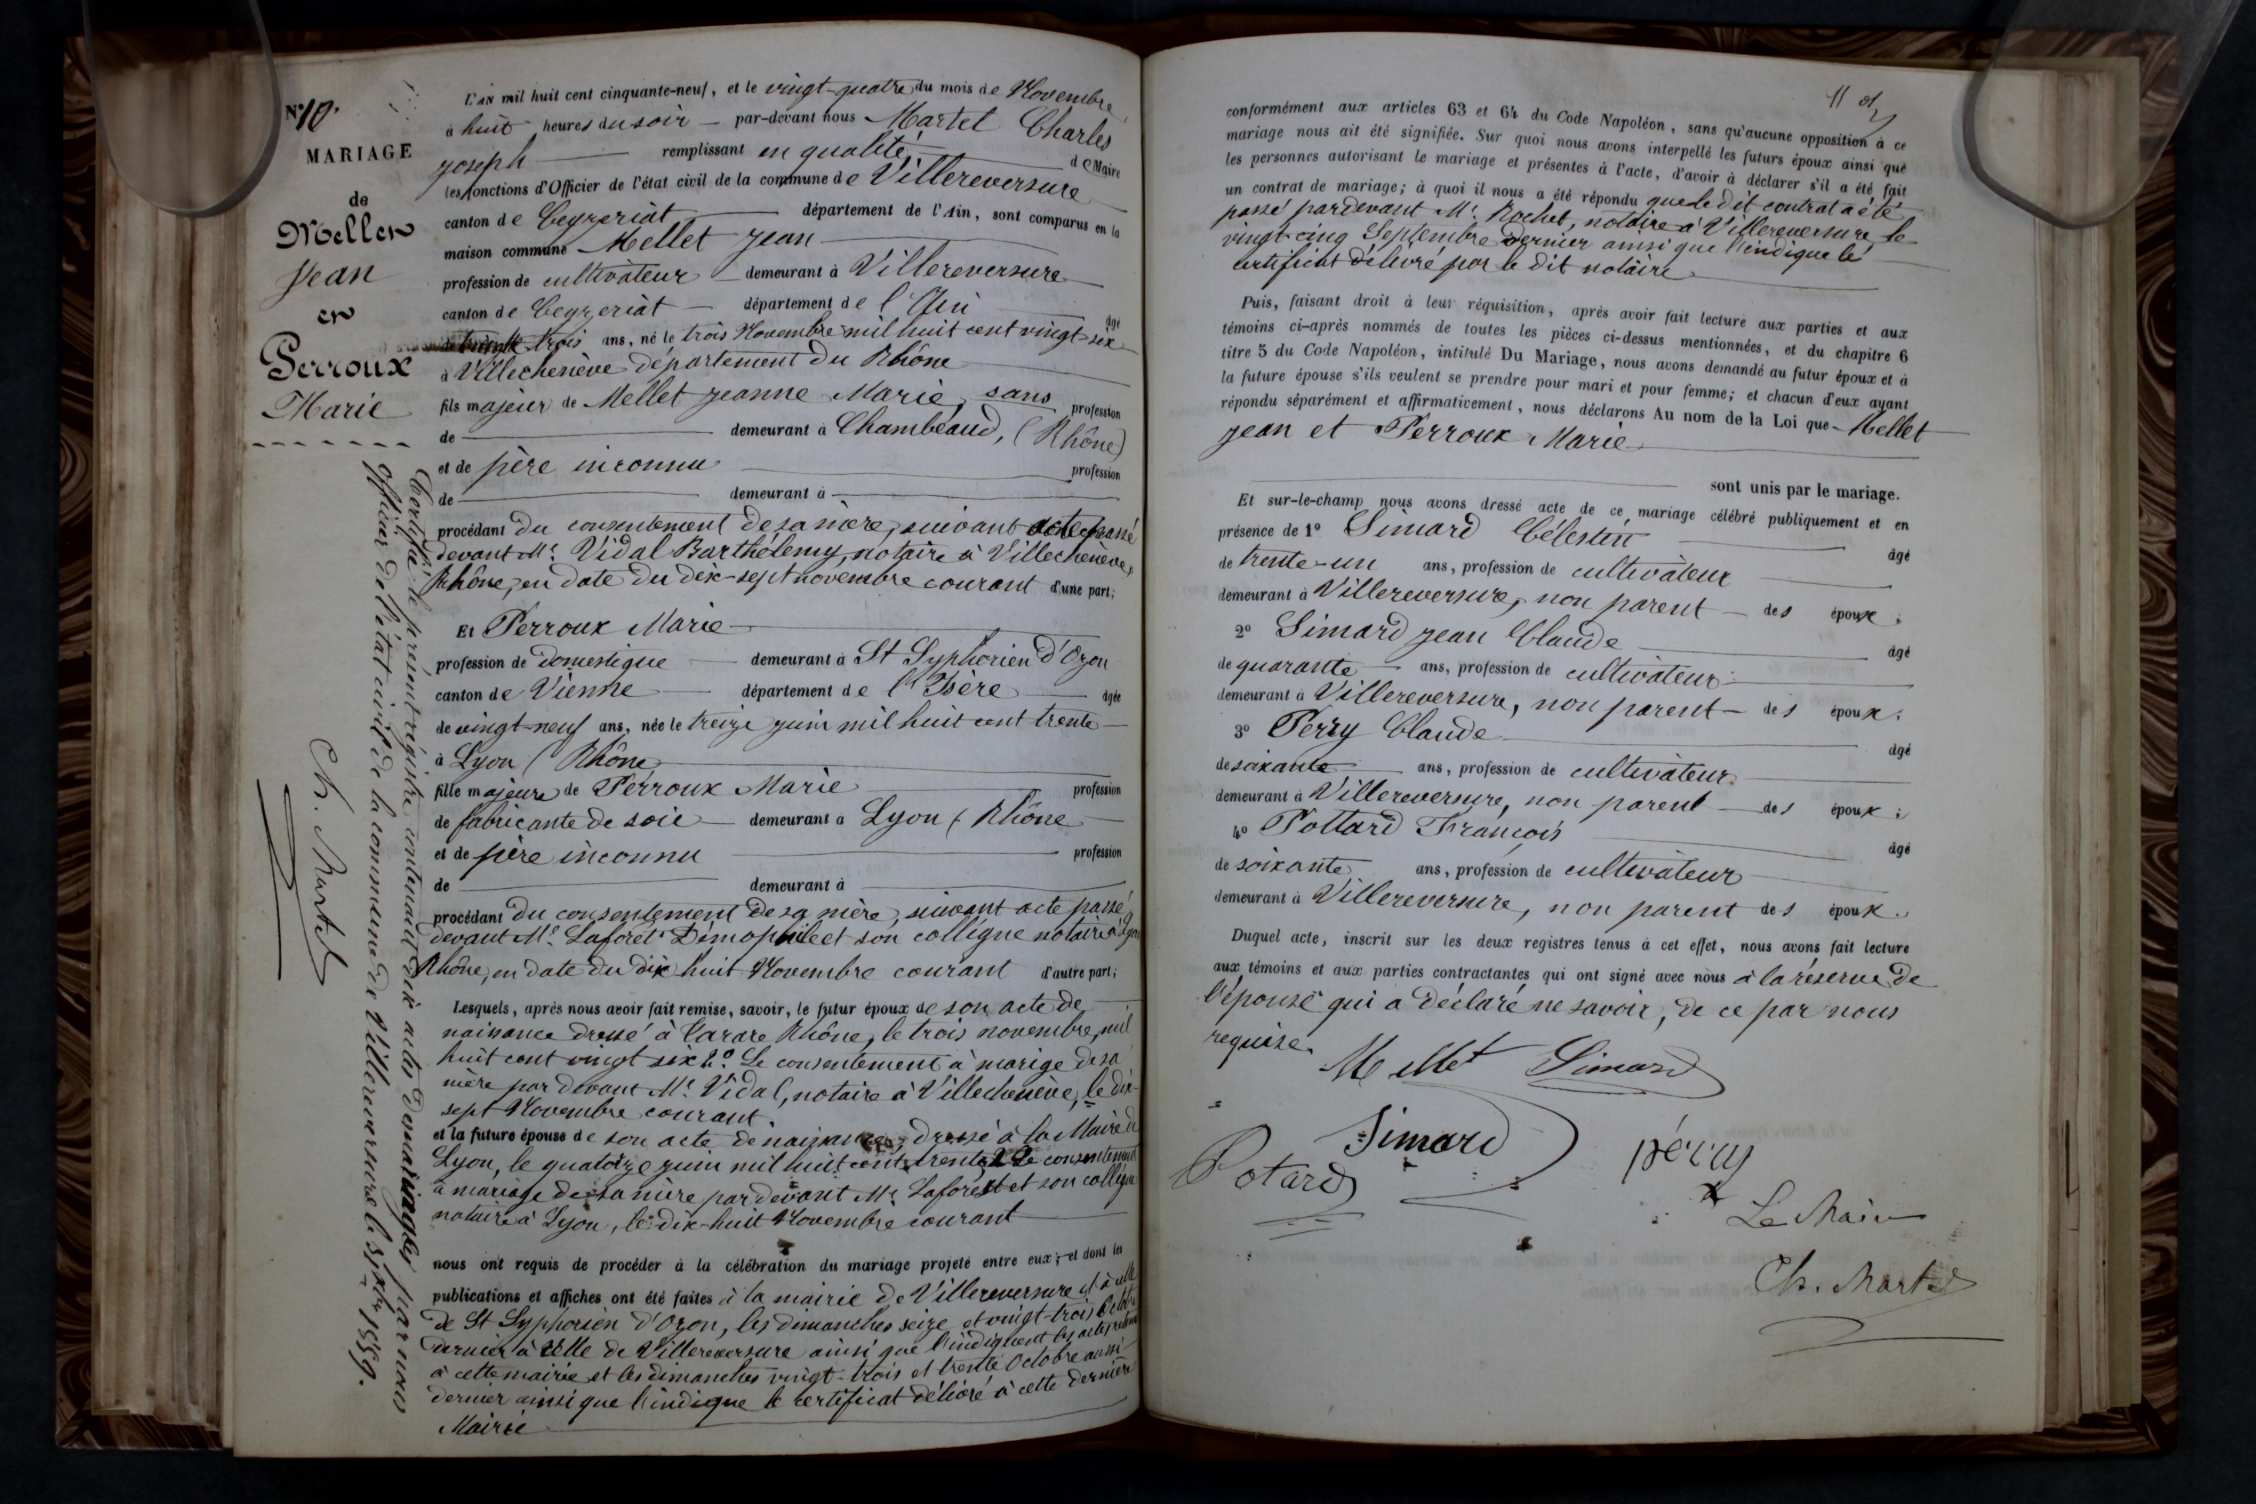 N° 10.
MARIAGE
de
Mellet
Jean
et
Perroux
Marie
L'AN mil huit cent cinquante-neuf, et le vingt-quatre du mois de Novembre
à huit heures du soir par-devant nous Martel Charles
Joseph remplissant en qualité de Maire
les fonctions d'Officier de l'état civil de la commune de Villereversure
canton de Ceyzeriat département de l'Ain, sont comparus en la
maison commune Mellet Jean
profession de cultivateur demeurant à Villereversure
canton de Ceyzeriat département de l'Ain âgé
de trente trois ans, né le trois Novembre mil huit cent vingt-six
à Villechenève département du Rhône
fils majeur de Mellet Jeanne Marie, sans profession
de demeurant à Chambéaud, (Rhône)
et de père inconnu profession
de demeurant à
procédant du consentement de sa mère, suivant acte passé
devant Me. Vidal Barthélemy, notaire à Villechenève,
Rhône, en date du dix-sept novembre courant d'une part;
Et Perroux Marie
profession de domestique demeurant à St Syphorien d'Ozon
canton de Vienne département de l'Isère âgée
de vingt-neuf ans, née le treize juin mil huit cent trente
à Lyon (Rhône
fille majeure de Perroux Marie profession
de fabricante de soie demeurant à Lyon (Rhône
et de père inconnu profession
de demeurant à
procédant du consentement de sa mère, suivant acte passé
devant Me. Laforêt Démophile et son collègue notaire à Lyon
Rhône, en date du dix huit Novembre courant d'autre part;
Lesquels, après nous avoir fait remise, savoir, le futur époux de son acte de
naissance dressé à Tarare Rhône, le trois novembre, mil
huit cent vingt six 2°. Le consentement à marige de sa
mère par devant Me. Vidal, notaire à Villechenève, le dix-
sept Novembre courant.
et la future épouse de son acte de naissance, dressé à la Mairie de
Lyon, le quatorze juin mil huit cent trente, 2° Le consentement
à mariage de sa mère par devant Me. Laforêt et son collègue
notaire à Lyon, le dix-huit Novembre courant
nous ont requis de procéder à la célébration du mariage projeté entre eux; et dont les
publications et affiches ont été faites à la mairie de Villereversure et à celle
de St Syphorien d'Ozon, les dimanches seize et vingt-trois Octobre
dernier à celle de Villereversure ainsi que l'indiquent les actes
à cette mairie et les dimanches vingt-trois et trente Octobre aussi
dernier ainsi que l'indique le certificat délivré à cette dernière
Mairie
Certifié le présent régistre contenant dix actes de mariages par nous
officier de l'état civil de la commune de Villereversure le 31 Xbre 1859.
Ch. Martel
11
conformément aux articles 63 et 64 du Code Napoléon, sans qu'aucune opposition à ce
mariage nous ait été signifiée. Sur quoi nous avons interpellé les futurs époux ainsi que
les personnes autorisant le mariage et présentes à l'acte, d'avoir à déclarer s'il a été fait
un contrat de mariage; à quoi il nous a été répondu que le dit contrat a été
passé pardevant Me. Rochet, notaire à Villereversure, le
vingt-cinq Septembre dernier ainsi que l'indique le
certificat délivré par le dit notaire
Puis, faisant droit à leur réquisition, après avoir fait lecture aux parties et aux
témoins ci-après nommés de toutes les pièces ci-dessus mentionnées, et du chapitre 6
titre 5 du Code Napoléon, intitulé Du Mariage, nous avons demandé au futur époux et à
la future épouse s'ils veulent se prendre pour mari et pour femme; et chacun d'eux ayant
répondu séparément et affirmativement, nous déclarons Au nom de la Loi que Mellet
Jean et Perroux Marie
sont unis par le mariage.
Et sur-le-champ nous avons dressé acte de ce mariage célébré publiquement et en
présence de 1° Simard Célestin âgé
de trente-un ans, profession de cultivateur
demeurant à Villereversure, non parent des époux;
2° Simard Jean Claude âgé
de quarante ans, profession de cultivateur
demeurant à Villereversure, non parent des époux;
3° Perry Claude âgé
de soixante ans, profession de cultivateur
demeurant à Villereversure, non parent des époux;
4° Pottard François âgé
de soixante ans, profession de cultivateur
demeurant à Villereversure, non parent des époux.
Duquel acte, inscrit sur les deux registres tenus à cet effet, nous avons fait lecture
aux témoins et aux parties contractantes qui ont signé avec nous à la réserve de
l'épouse qui a déclaré ne savoir, de ce par nous
requise.
Mellet Simard
Simard péray
Potard
Le Maire
Ch. Martel